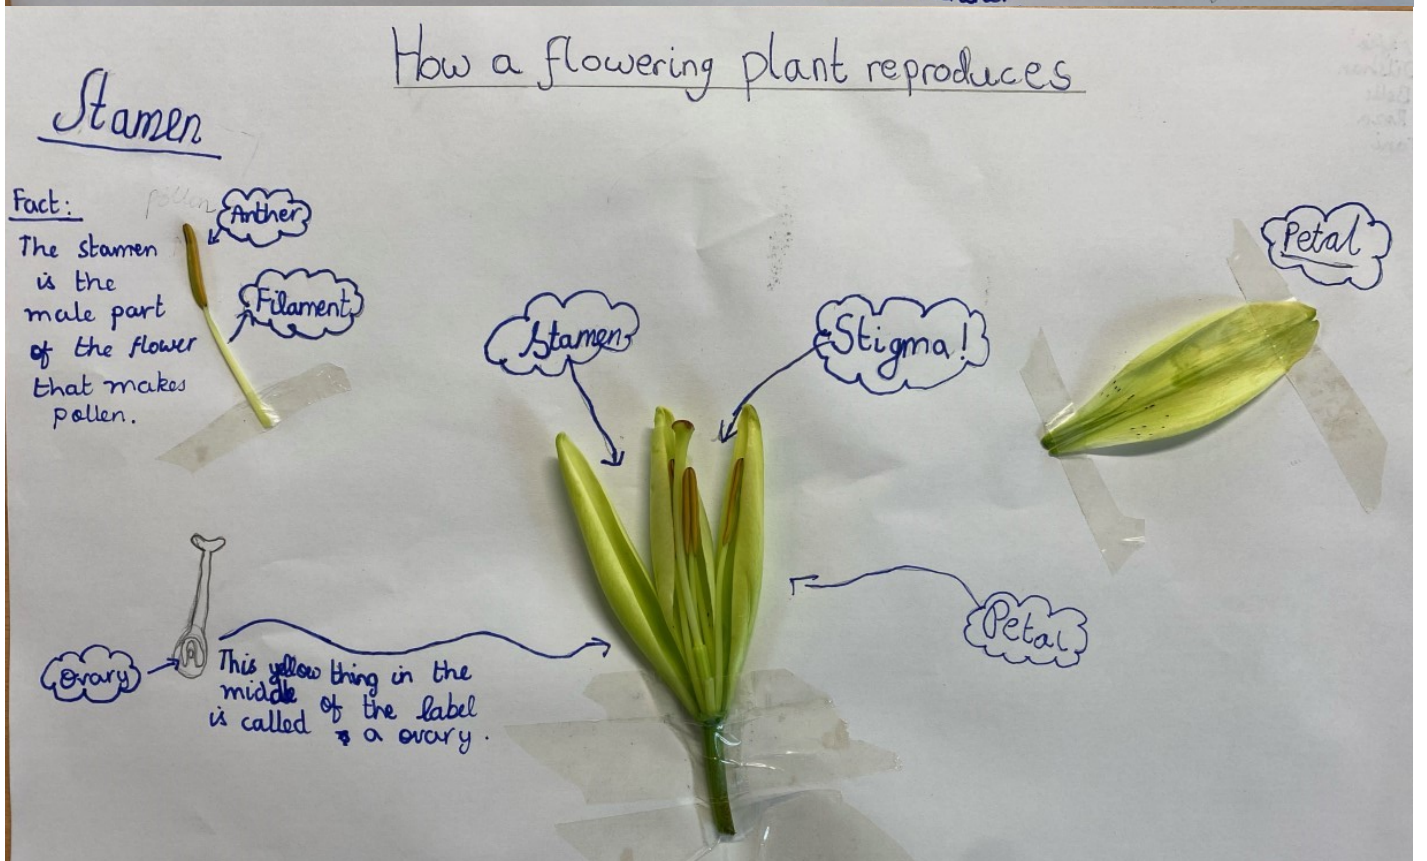 How a flowering plant reproduces
Stamen
Fact:
The stamen
is the
male part
of the flower
that makes
pollen.
pollen
Anther
Filament
Stamen
Stigma!
Petal
Petal
Ovary
This yellow thing in the
middle of the label
is called a ovary.